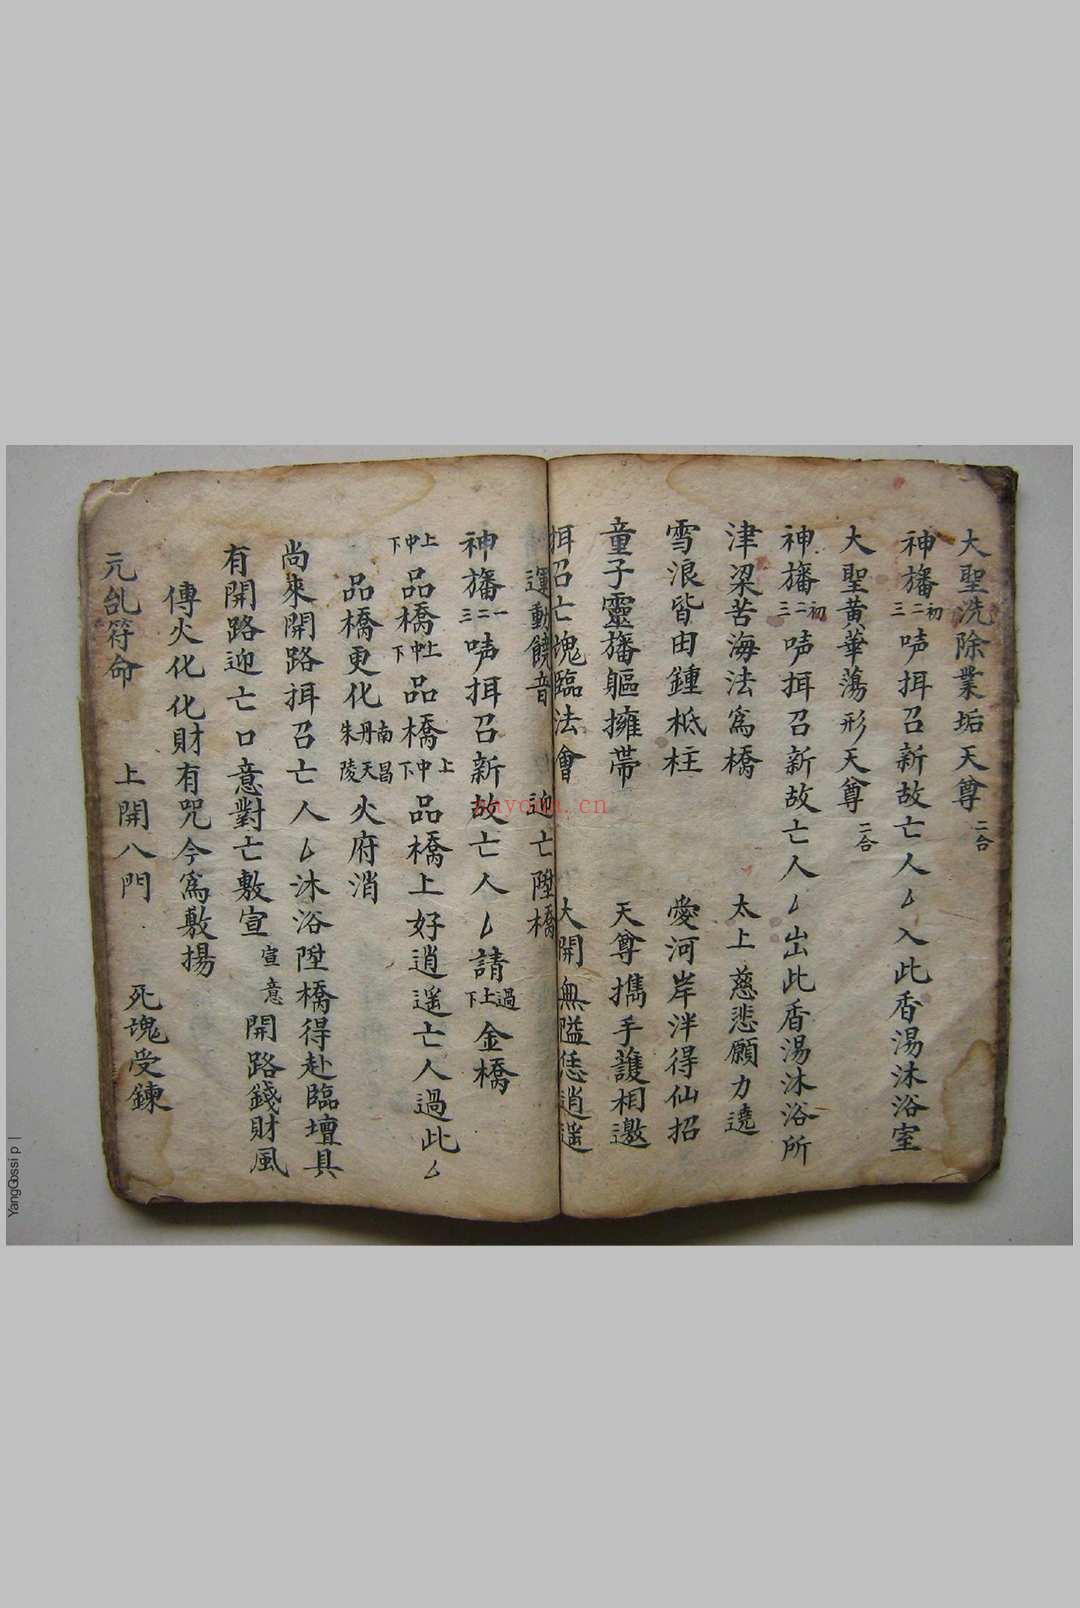 大聖洗除業垢天尊 二合
神旛初二三唪挕召新故亡人入此香湯沐浴室
大聖黃華蕩形天尊 二合
神旛初二三唪挕召新故亡人出此香湯沐浴所
津梁苦海法為橋 太上慈悲願力遶
雪浪皆由鍾柢柱 愛河岸泮得仙招
童子靈旛軀擁帶 天尊擕手護相邀
挕召亡魂臨法會 大開無隘恁逍遥
運動鐃音 迎亡陞橋
神旛一二三唪挕召新故亡人請過上下金橋
上中下品橋上中下品橋上中下品橋上好逍遥亡人過此
品橋更化南昌丹天朱陵火府消
尚來開路挕召亡人沐浴陞橋得赴臨壇具
有開路迎亡口意對亡敷宣 宣意 開路錢財風
傳火化化財有咒今為敷揚
元亂符命 上開八門 死魂受鍊
nayona.cn
YangGossip |